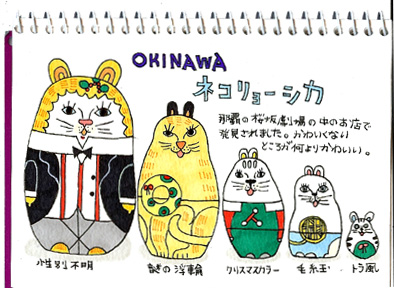 OKINAWA
ネコリョーシカ
那覇の桜坂劇場の中のお店で
発見されました。かわいくない
ところが何よりかわいい。
性別不明
謎の浮輪
クリスマスカラー
毛糸玉
トラ風